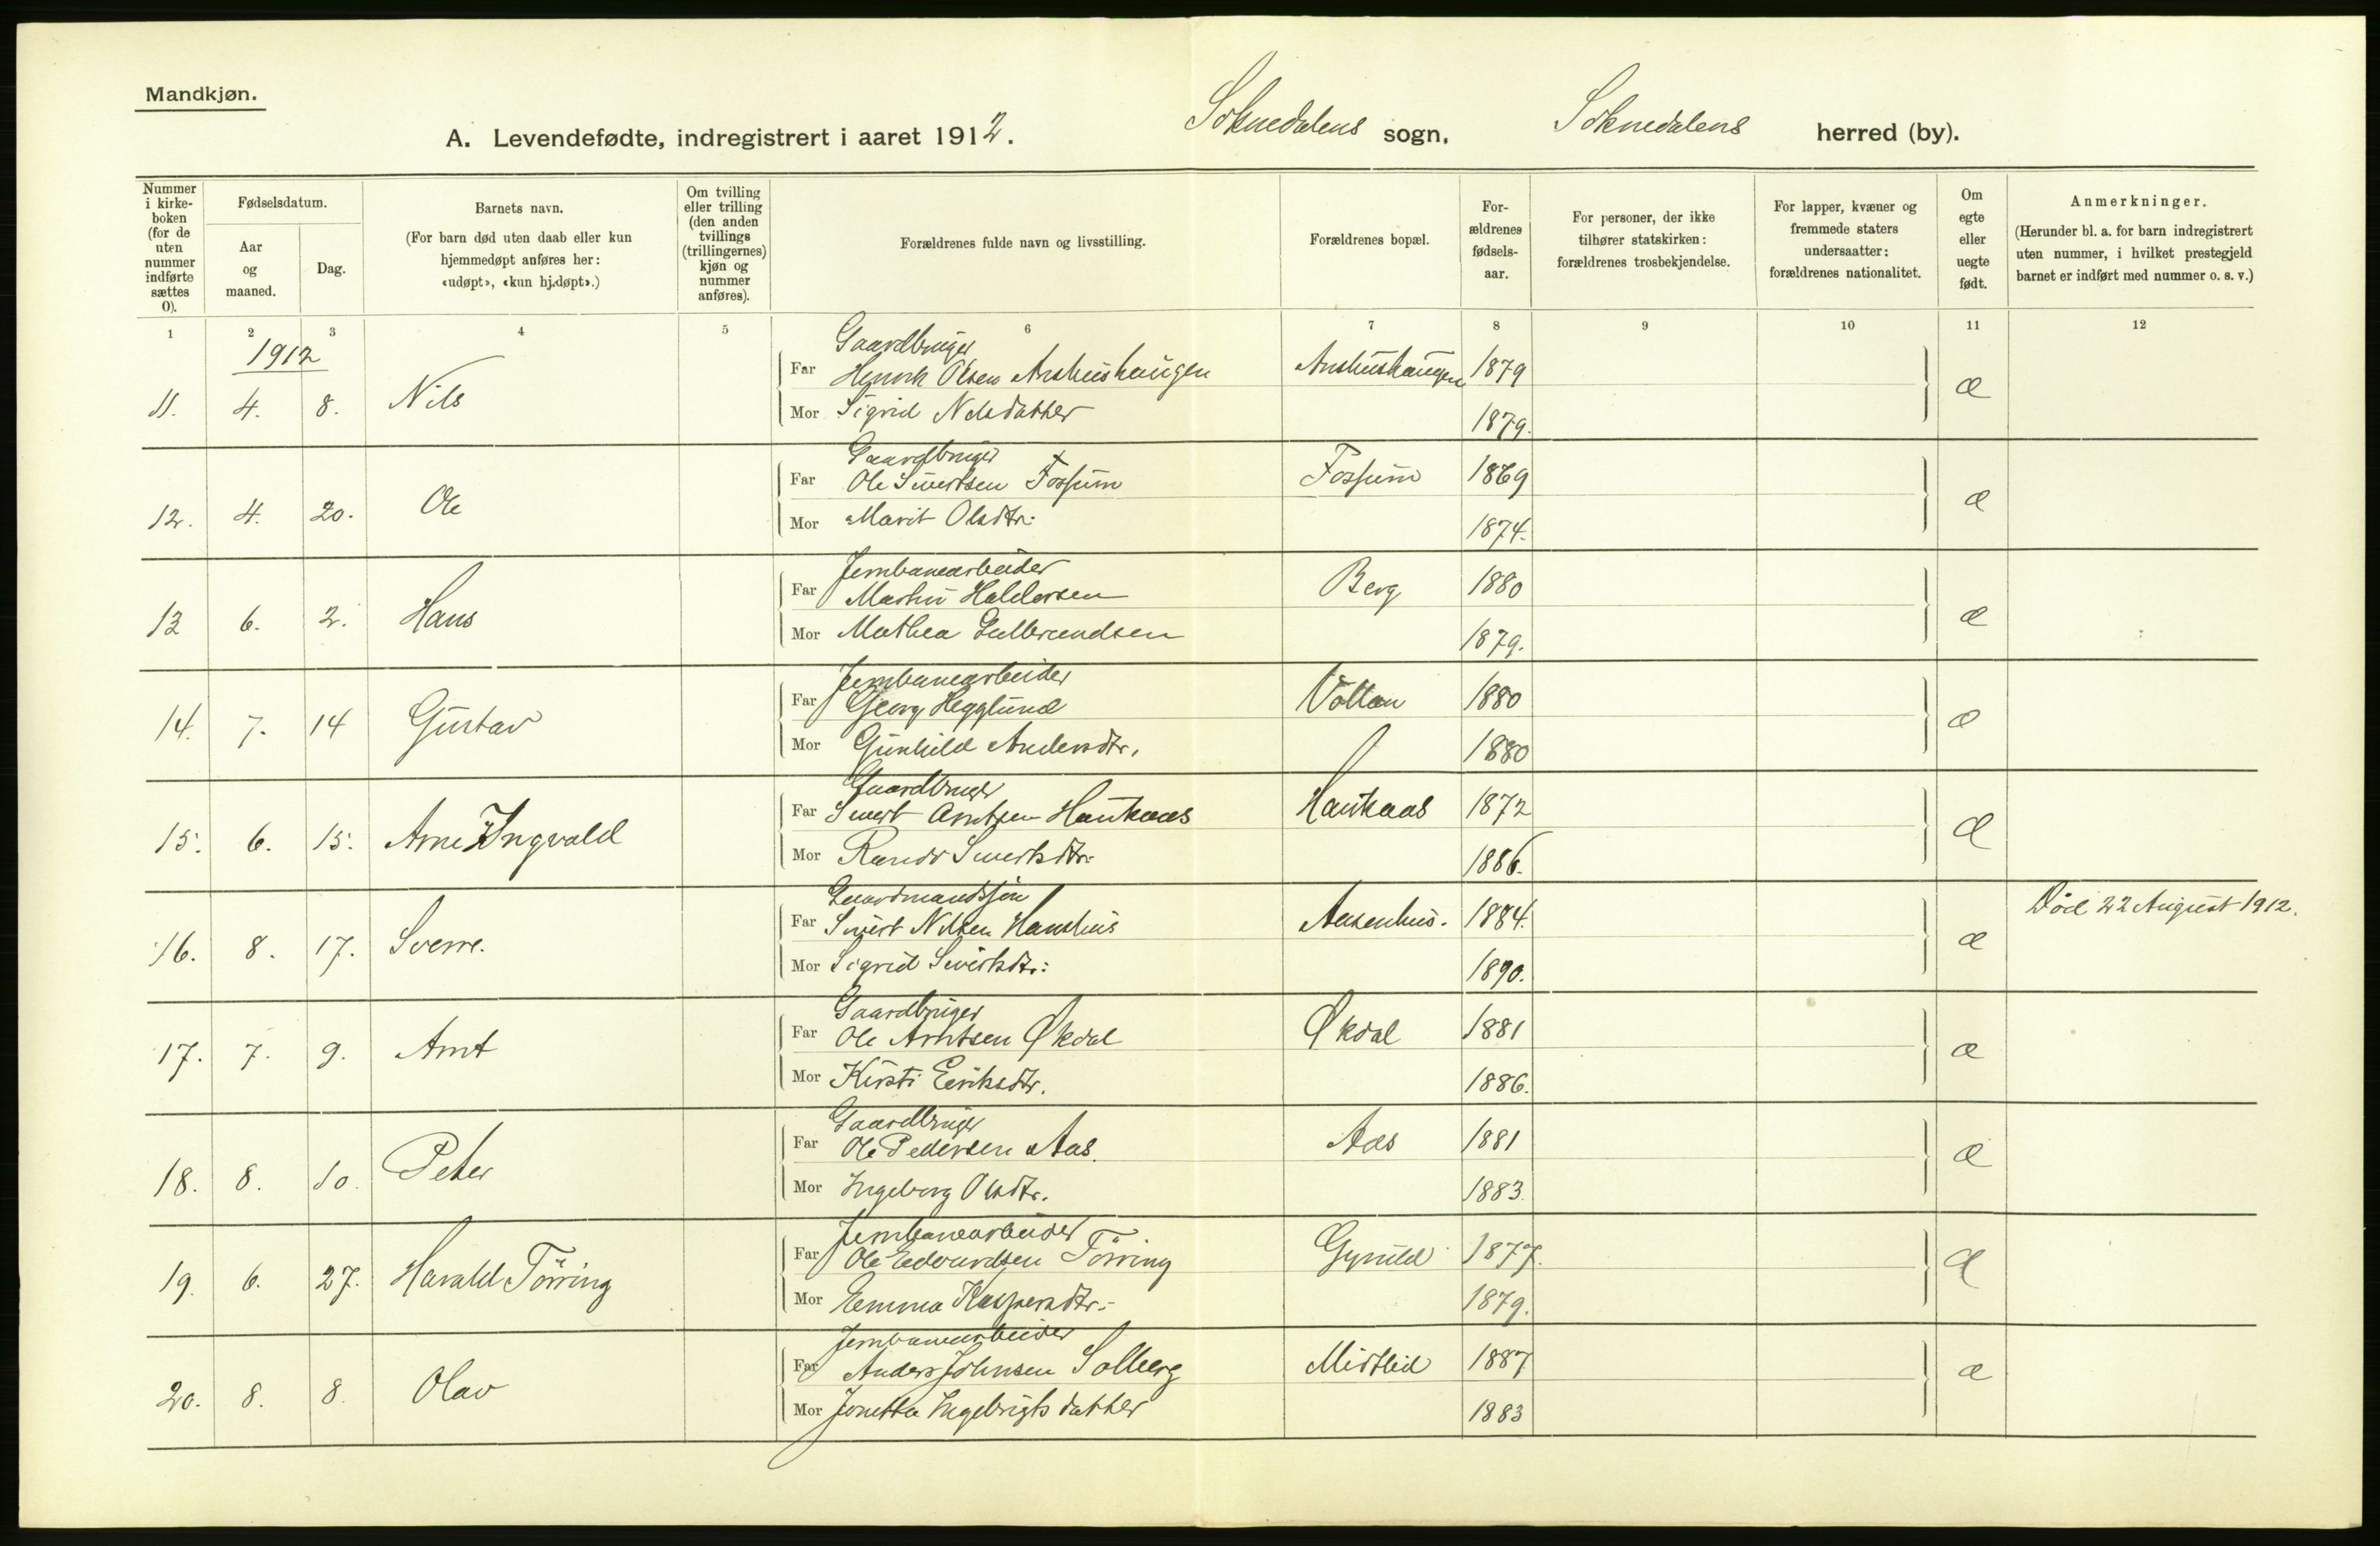 Mandkjøn.
A. Levendefødte, indregistrert i aaret 1912. Soknedalens sogn, Soknedalens herred (by).
Nummer i kirke- boken (for de uten nummer indførte sættes 0).
Fødselsdatum.
Aar og maaned.
Dag.
Barnets navn.
(For barn død uten daab eller kun hjemmedøpt anføres her: «udøpt», «kun hj.døpt».)
Om tvilling eller trilling (den anden tvillings (trillingernes) kjøn og nummer anføres).
Forældrenes fulde navn og livsstilling.
Forældrenes bopæl.
For- ældrenes fødsels- aar.
For personer, der ikke tilhører statskirken: forældrenes trosbekjendelse.
For lapper, kvæner og fremmede staters undersaatter: forældrenes nationalitet.
Om egte eller uegte født.
Anmerkninger.
(Herunder bl. a. for barn indregistrert uten nummer, i hvilket prestegjeld barnet er indført med nummer o. s. v.)
1 2 3 4 5 6 7 8 9 10 11 12
1912
Gaardbruger
Far Henrik Olsen Aushushaugen Aushushaugen 1879
11. 4. 8. Nils æ
Mor Sigrid Nilsdatter 1879.
Gaardbruger
Far Ole Sivertsen Fossum Fossum 1869
12. 4. 20. Ole æ
Mor Marit Olsdtr: 1874.
Jernbanearbeider
Far Martin Haldorsen Berg 1880
13 6. 2. Hans æ
Mor Mathea Gulbrandsen 1879.
Jernbanearbeider
Far Georg Hegglund Vollan 1880
14. 7. 14 Gustav æ
Mor Gunhild Andersdtr. 1880
Gaardbruger
Far Sivert Arntsen Haukaas Haukaas 1872
15. 6. 15. Arne Ingvald æ
Mor Randi Sivertsdtr: 1886.
Gaardmandssøn
Far Sivert Nilsen Hanshus Aasenhus. 1884. Død 22 August 1912.
16. 8. 17. Sverre. æ
Mor Sigrid Sivertsdtr: 1890.
Gaardbruger
Far Ole Arntsen Økdal Økdal 1881
17. 7. 9. Arnt æ
Mor Kirsti Eeriksdtr. 1886.
Gaardbruger
Far Ole Pedersen Aas. Aas 1881
18. 8. 10. Peter æ
Mor Ingeborg Olsdtr. 1883.
Jernbanearbeider
Far Ole Edvardsen Törring Gynild 1877.
19. 6. 27. Harald Törring æ
Mor Emma Kaspersdtr.- 1879.
Jernbanearbeider
Far Anders Johnsen Solberg Midtlid 1887
20. 8. 8. Olav æ
Mor Jonetta Ingebrigtsdatter 1883